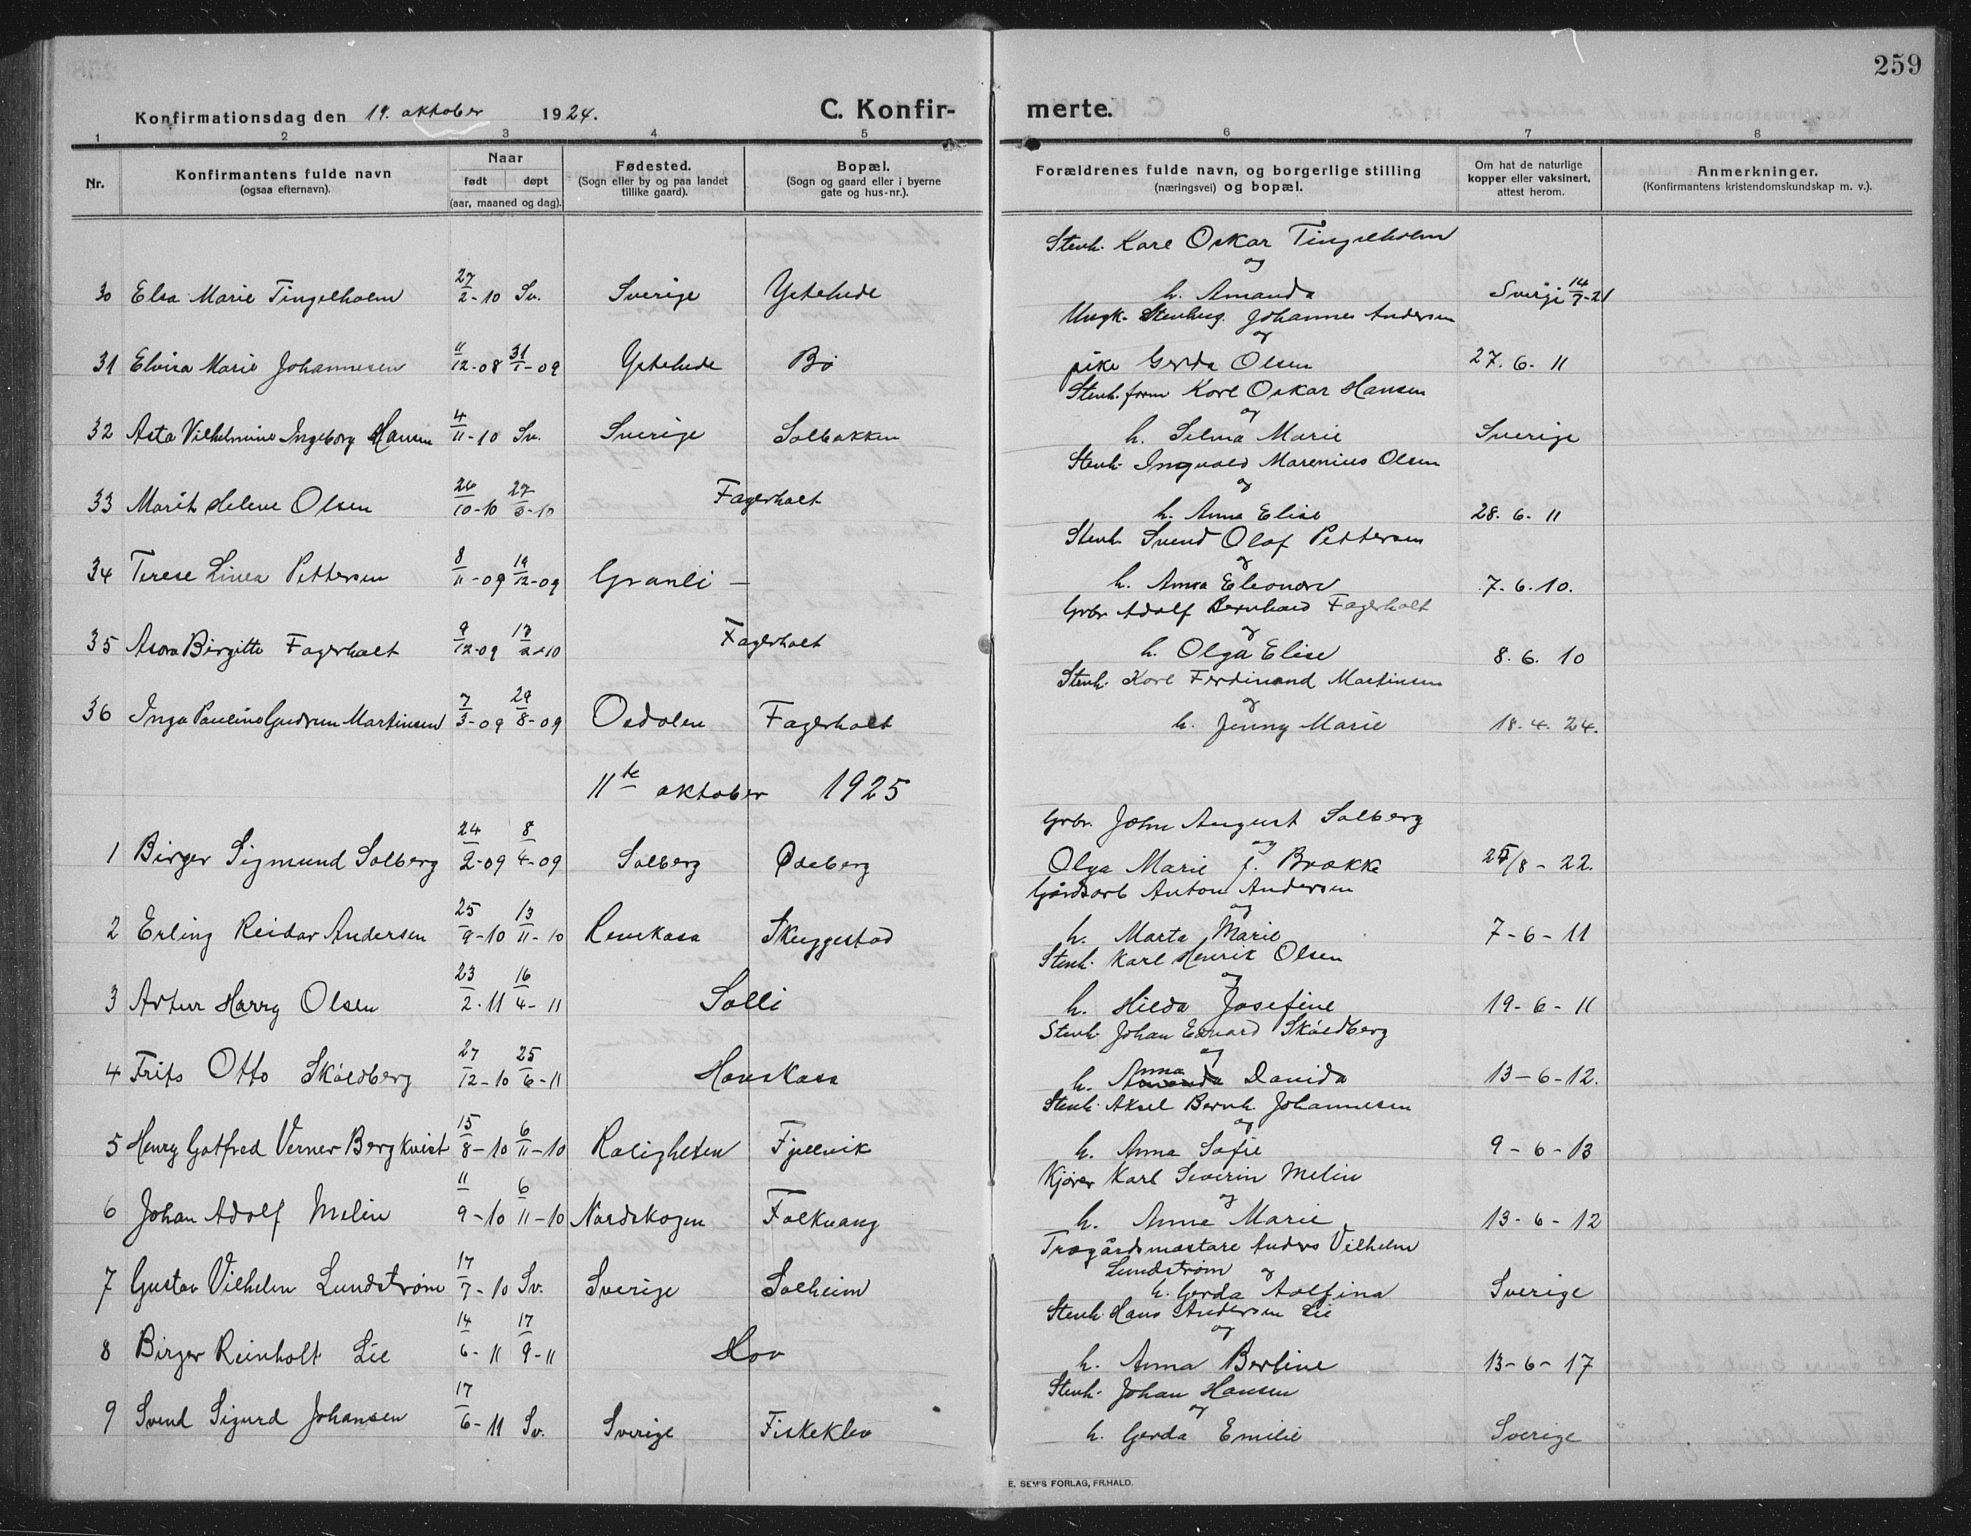 259
Konfirmationsdag den 19. oktober 1924. C. Konfirmerte.
1 2 3 4 5 6 7 8
Nr. Konfirmantens fulde navn (ogsaa efternavn). Naar født døpt (aar, maaned og dag). Fødested. (Sogn eller by og paa landet tillike gaard). Bopæl. (Sogn og gaard eller i byerne gate og hus-nr.). Forældrenes fulde navn, og borgerlige stilling (næringsvei) og bopæl. Om hat de naturlige kopper eller vaksinert, attest herom. Anmerkninger. (Konfirmantens kristendomskundskap m. v.).
Stenh. Karl Oskar Tingelholm
og
30 Elsa Marie Tingelholm 27/2-10 Sv. Sverige Ystehede h. Amanda Sverige 14/7-21
Ungk. Stenhug. Johannes Andersen
og
31 Elvira Marie Johannesen 11/12-08 31/1-09 Ystehede Bø pike Gerda Olsen 27. 6. 11
Stenh.form Karl Oskar Hansen
og
32 Asta Vilhelmine Ingeborg Hansen 4/11-10 Sv. Sverige Solbakken h. Selma Marie Sverige
Stenh. Ingvald Marenius Olsen
og
33 Marit Helene Olsen 26/10-10 Fagerholt h. Anna Elise 28. 6. 11
Stenh. Svend Olof Pettersen
og
34 Terese Linea Pettersen 8/11-09 19/12-09 Granli — h. Anna Eleonore 7. 6. 10.
Grbr. Adolf Bernhard Fagerholt
og
35 Asora Birgitte Fagerholt 9/12-09 Fagerholt h. Olga Elise 8. 6. 10
Stenh. Karl Ferdinand Martinsen
og
36 Inga Pauline Gudrun Martinsen 7/3-09 29/8-09 Osdalen Fagerholt h. Jenny Marie 18. 4. 24.
11te oktober 1925
Grbr. John August Solberg
og
1 Birger Sigmund Solberg 24/2-09 8/4-09 Solberg Ødeberg Olga Marie f. Brække 25/8-22.
Gårdsarb Anton Andersen
og
2 Erling Reidar Andersen 25/9-10 13/11-10 Renskasa Skuggestad h. Marta Marie 7-6-11
Stenh. Karl Henrik Olsen
og
3 Artur Harry Olsen 23/2-11 16/4-11 Solli h. Hilda Josefine 19-6-11
Stenh. Johan Edvard Skåldberg
og
Anna
4 Frits Otto Skåldberg 27/12-10 25/6-11 Hovskasa h. Amanda Davida 13-6-12.
Stenh. Aksel Bernh. Johannesen
og
5 Henry Gotfred Verner Bergkvist 15/8-10 6/11-10 Roligheten Fjellvik h. Anna Sofie 9-6-13
Kjører Karl Severin Melin
og
6 Johan Adolf Melin 11/9-10 6/11-10 Nordskogen Folkvang h. Anne Marie 13-6-12
Trægårdsmästare Anders Vilhelm
Lundstrøm og
7 Gustav Vilhelm Lundstrøm 17/7-10 Sv. Sverige Solheim h. Gerda Adlfina Sverige
Stenh. Hans Andersen Lie
og
8 Birger Reinholt Lie 14/6-11 17/9-11 Hov h. Anna Bertine 13-6-17
Stenh. Johan Hansen
og
9 Svend Sigurd Johansen 17/6-11 Sv. Sverige Fiskeklev h. Gerda Emilie Sverige
E. SEM'S FORLAG, FR.HALD.